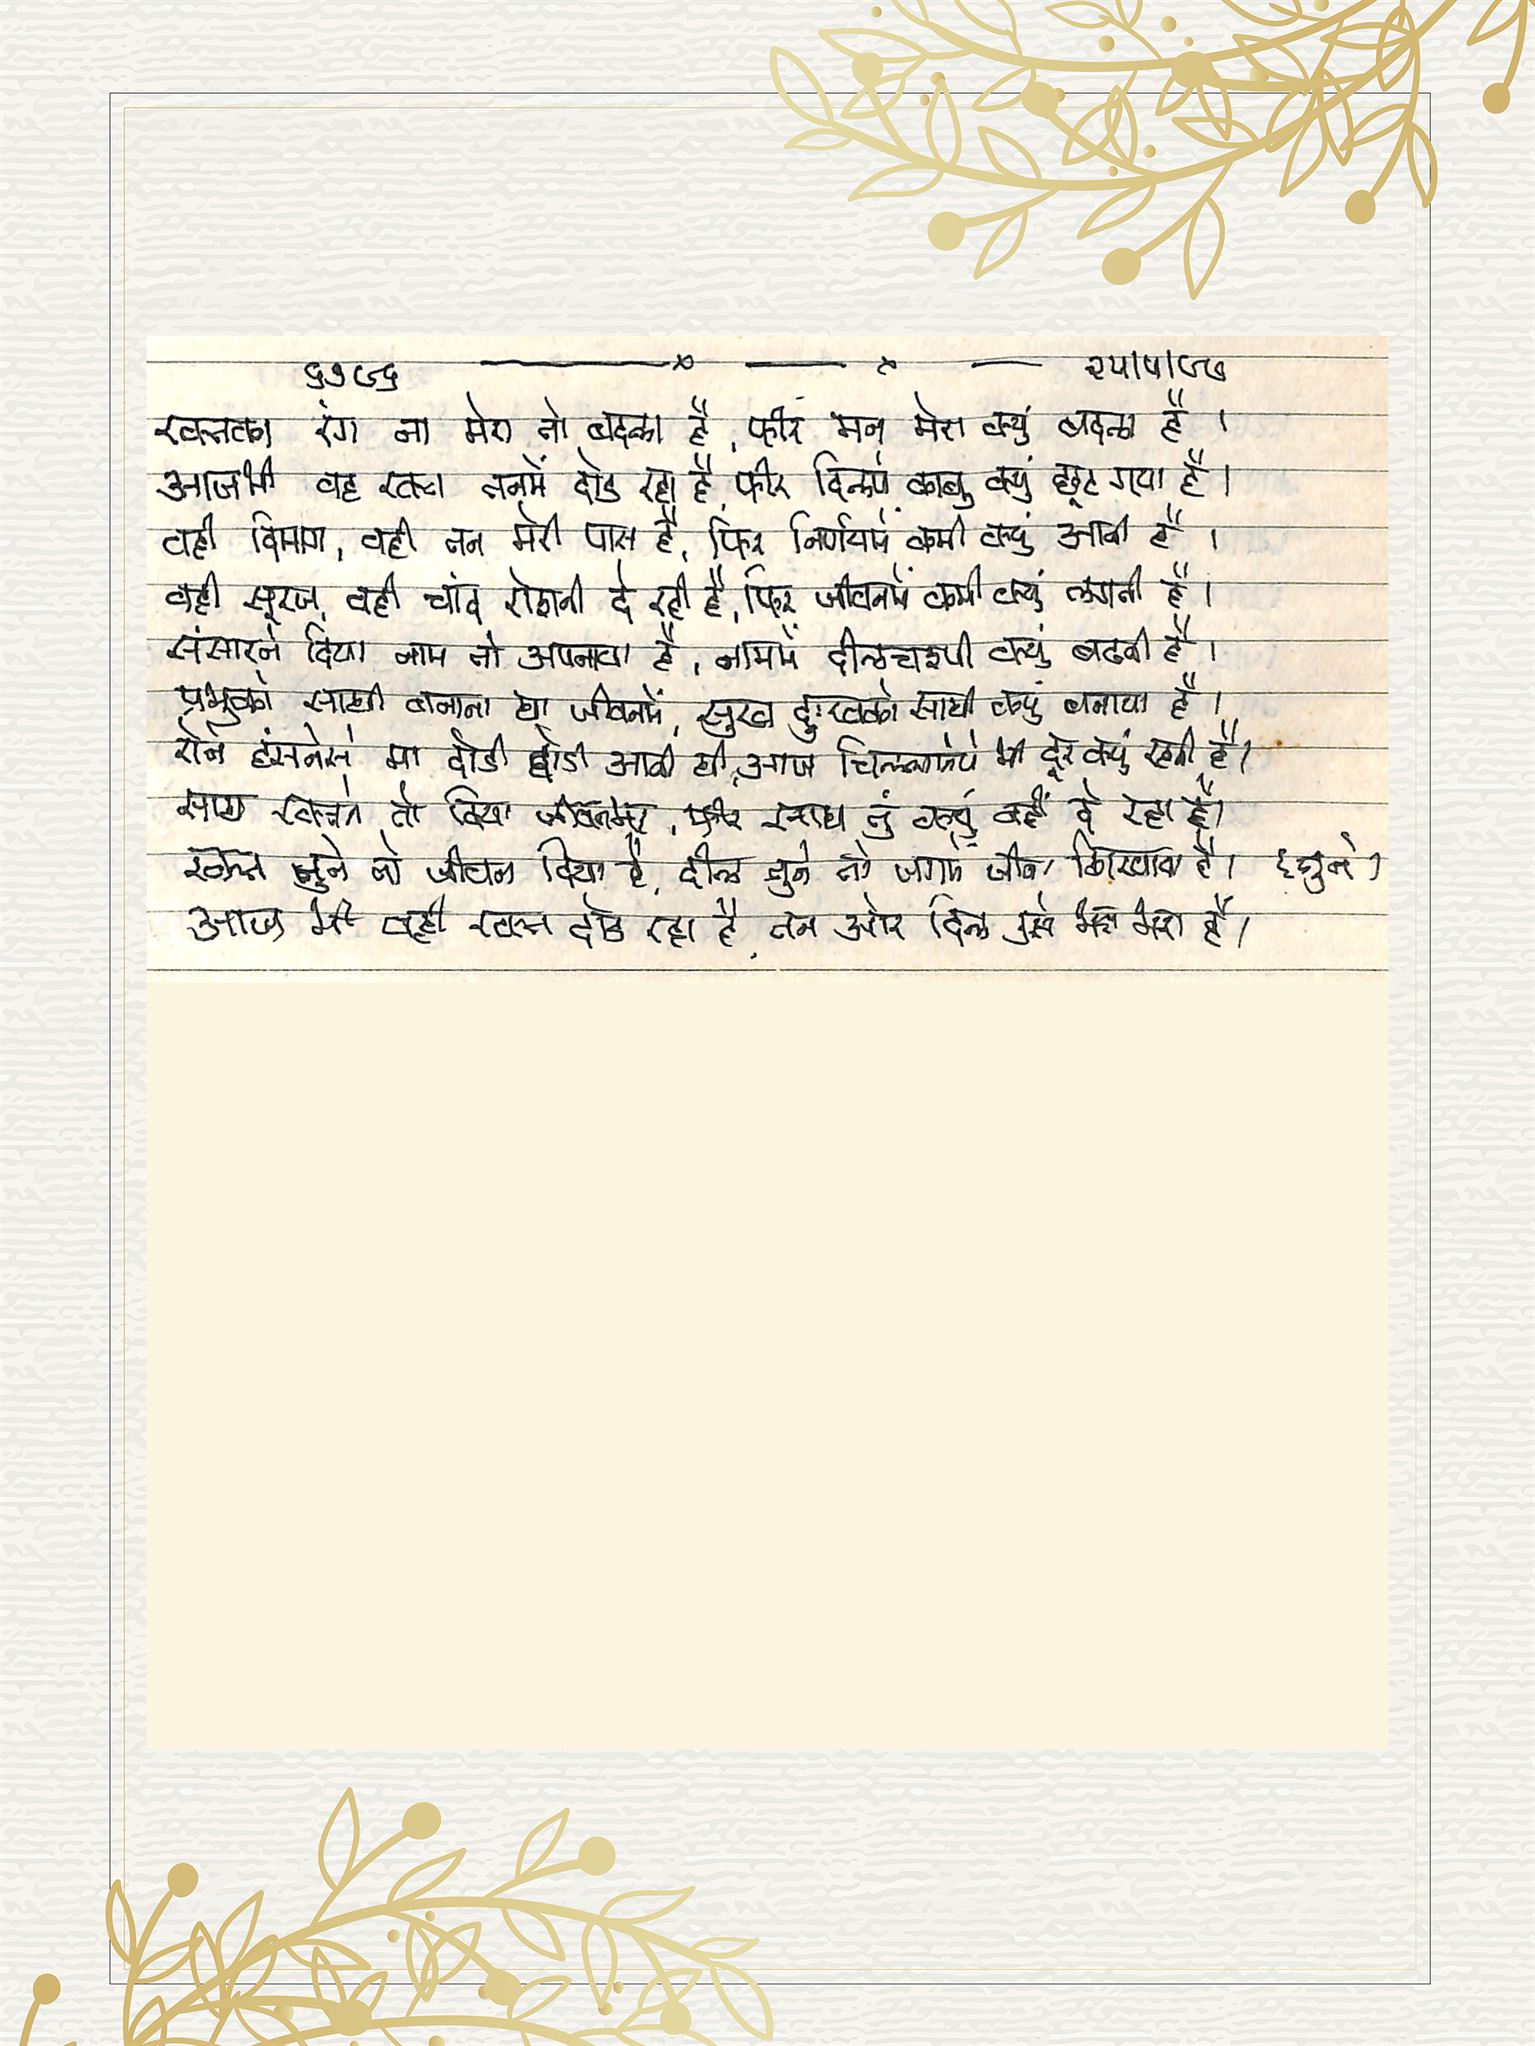 ६७८६ २५।५।८७
रक्तका रंग ना मेरा तो बदला है, फीर मन मेरा क्युं बदला है ।
आजभी वह रक्त तनमें दोड रहा है, फीर दिलपे काबु क्युं छूट गया है ।
वही दिमाग, वही तन मेरी पास है, फिर निर्णयमें कमी क्युं आती है ।
वही सूरज, वही चांद रोशनी दे रही है, फिर जीवनमें कमी क्युं लगती है ।
संसारने दिया नाम तो अपनाया है, नाममें दीलचश्पी क्युं बढती है ।
प्रभुको साथी बनाना था जीवनमें, सुख दुःखको साथी क्युं बनाया है ।
रोने हंसनेसे मा दोडी दोडी आती थी, आज चिल्लानेपे भी दूर क्युं रहती है ।
साथ रक्तने तो दिया जीवनभर, फीर साथ तुं क्युं नहीं दे रहा है ।
रक्त तुने तो जीवन दिया है, दील तुने तो जगमें जीना शिखाया है ।
आज भी वही रक्त दोड रहा है, तन और दिल मेरा है ।